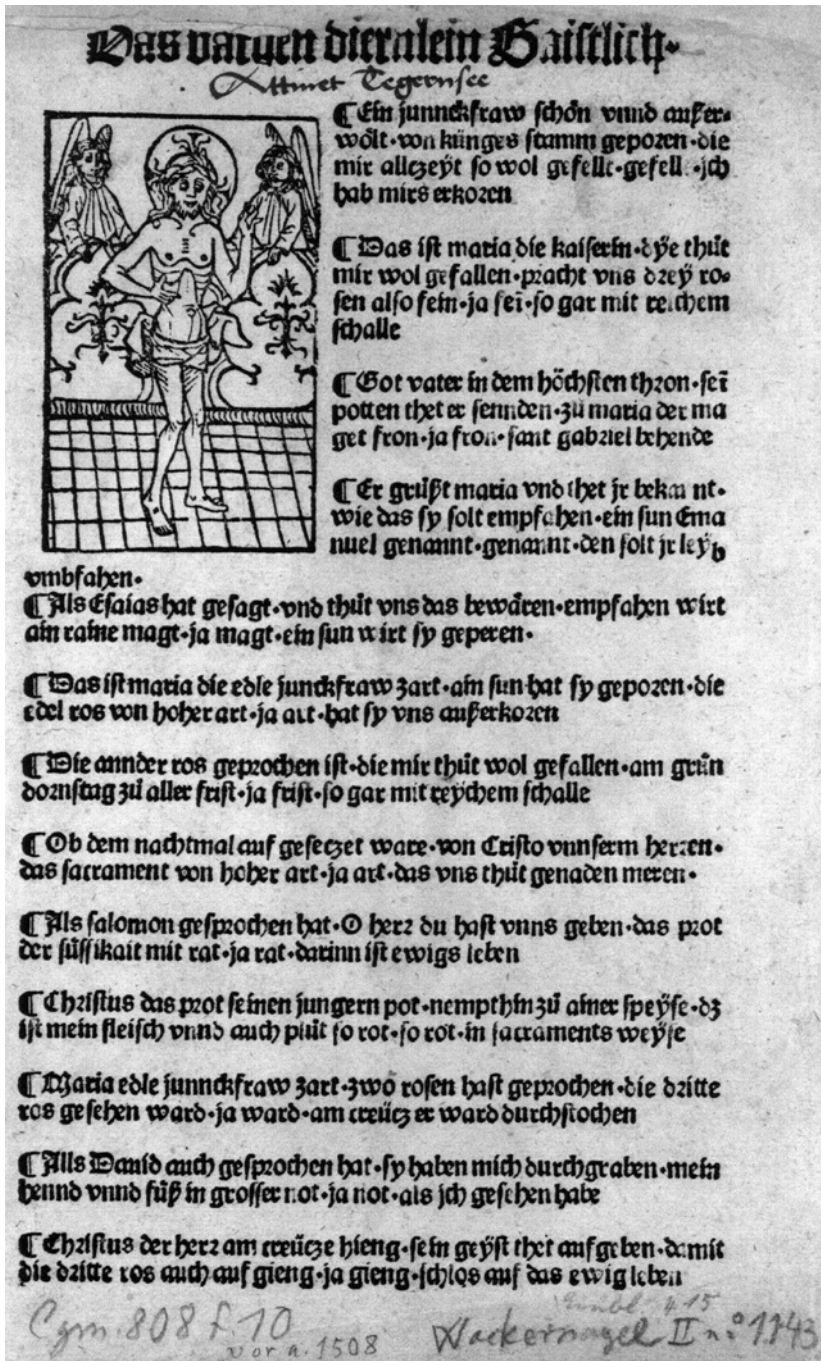 Das patuen diernlein Gaistlich·
Attinet Tegernsee
¶Ein junnckfraw schön vnnd außer⸗
wölt·von künges stamm geporen·die
mir allczeyt so wol gefellt·gefell·jch
hab mirs erkoren
¶Das ist maria die kaiserin·dÿe thůt
mir wol gefallen·pracht vns drey ro⸗
sen also fein·ja feī·so gar mit reichem
schalle
¶Got vater in dem höchsten thron·seī
potten thet er sennden·zů maria der ma
get fron·ja fron·sant gabriel behende
¶Er grüßt maria vnd thet jr bekannt·
wie das sy solt empfahen·ein sun Ema
nuel genannt·genannt·den solt jr leÿb
vmbfahen·
¶Als Esaias hat gesagt·vnd thůt vns das bewären·empfahen wirt
ain raine magt·ja magt·ein sun wirt sy geperen·
¶Das ist maria die edle junckfraw zart·ain sun hat sy geporen·die
edel ros von hoher art·ja art·hat sy vns außerkoren
¶Die annder ros geprochen ist·die mir thůt wol gefallen·am grůn
dornstag zů aller frist·ja frist·so gar mit reÿchem schalle
¶Ob dem nachtmal auf geseczet ware·von Cristo vnnserm herren·
das sacrament von hoher art·ja art·das vns thůt genaden meren·
¶Als salomon gesprochen hat·O herr du hast vnns geben·das prot
der süssikait mit rat·ja rat·darinn ist ewigs leben
¶Christus das prot seinen jungern pot·nempt hin zů ainer speÿse·dz
ist mein fleisch vnnd auch plůt so rot·so rot·in sacraments weÿse
¶Maria edle junnckfraw zart·zwo rosen hast geprochen·die dritte
ros gesehen ward·ja ward·am creücz er ward durchstochen
¶Alls Dauid auch gesprochen hat·sy haben mich durchgraben·mein
hennd vnnd füß in grosser not·ja not·als jch gesehen habe
¶Christus der herr am creücze hieng·sein geÿst thet aufgeben·damit
die dritte ros auch auf gieng·ja gieng·schlos auf das ewig leben
Cgm. 808 f. 10
vor a. 1508
Wackernagel II n.º 1143